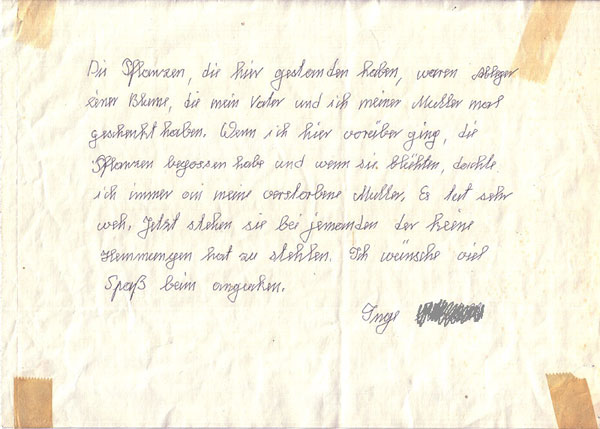 Die Pflanzen, die hier gestanden haben, waren Ableger
einer Blume, die mein Vater und ich meiner Mutter mal
geschenkt haben. Wenn ich hier vorüber ging, die
Pflanzen begossen habe und wenn sie blühten, dachte
ich immer an meine verstorbene Mutter. Es tut sehr
weh. Jetzt stehen sie bei jemanden der keine
Hemmungen hat zu stehlen. Ich wünsche viel
Spaß beim angucken.
Inge